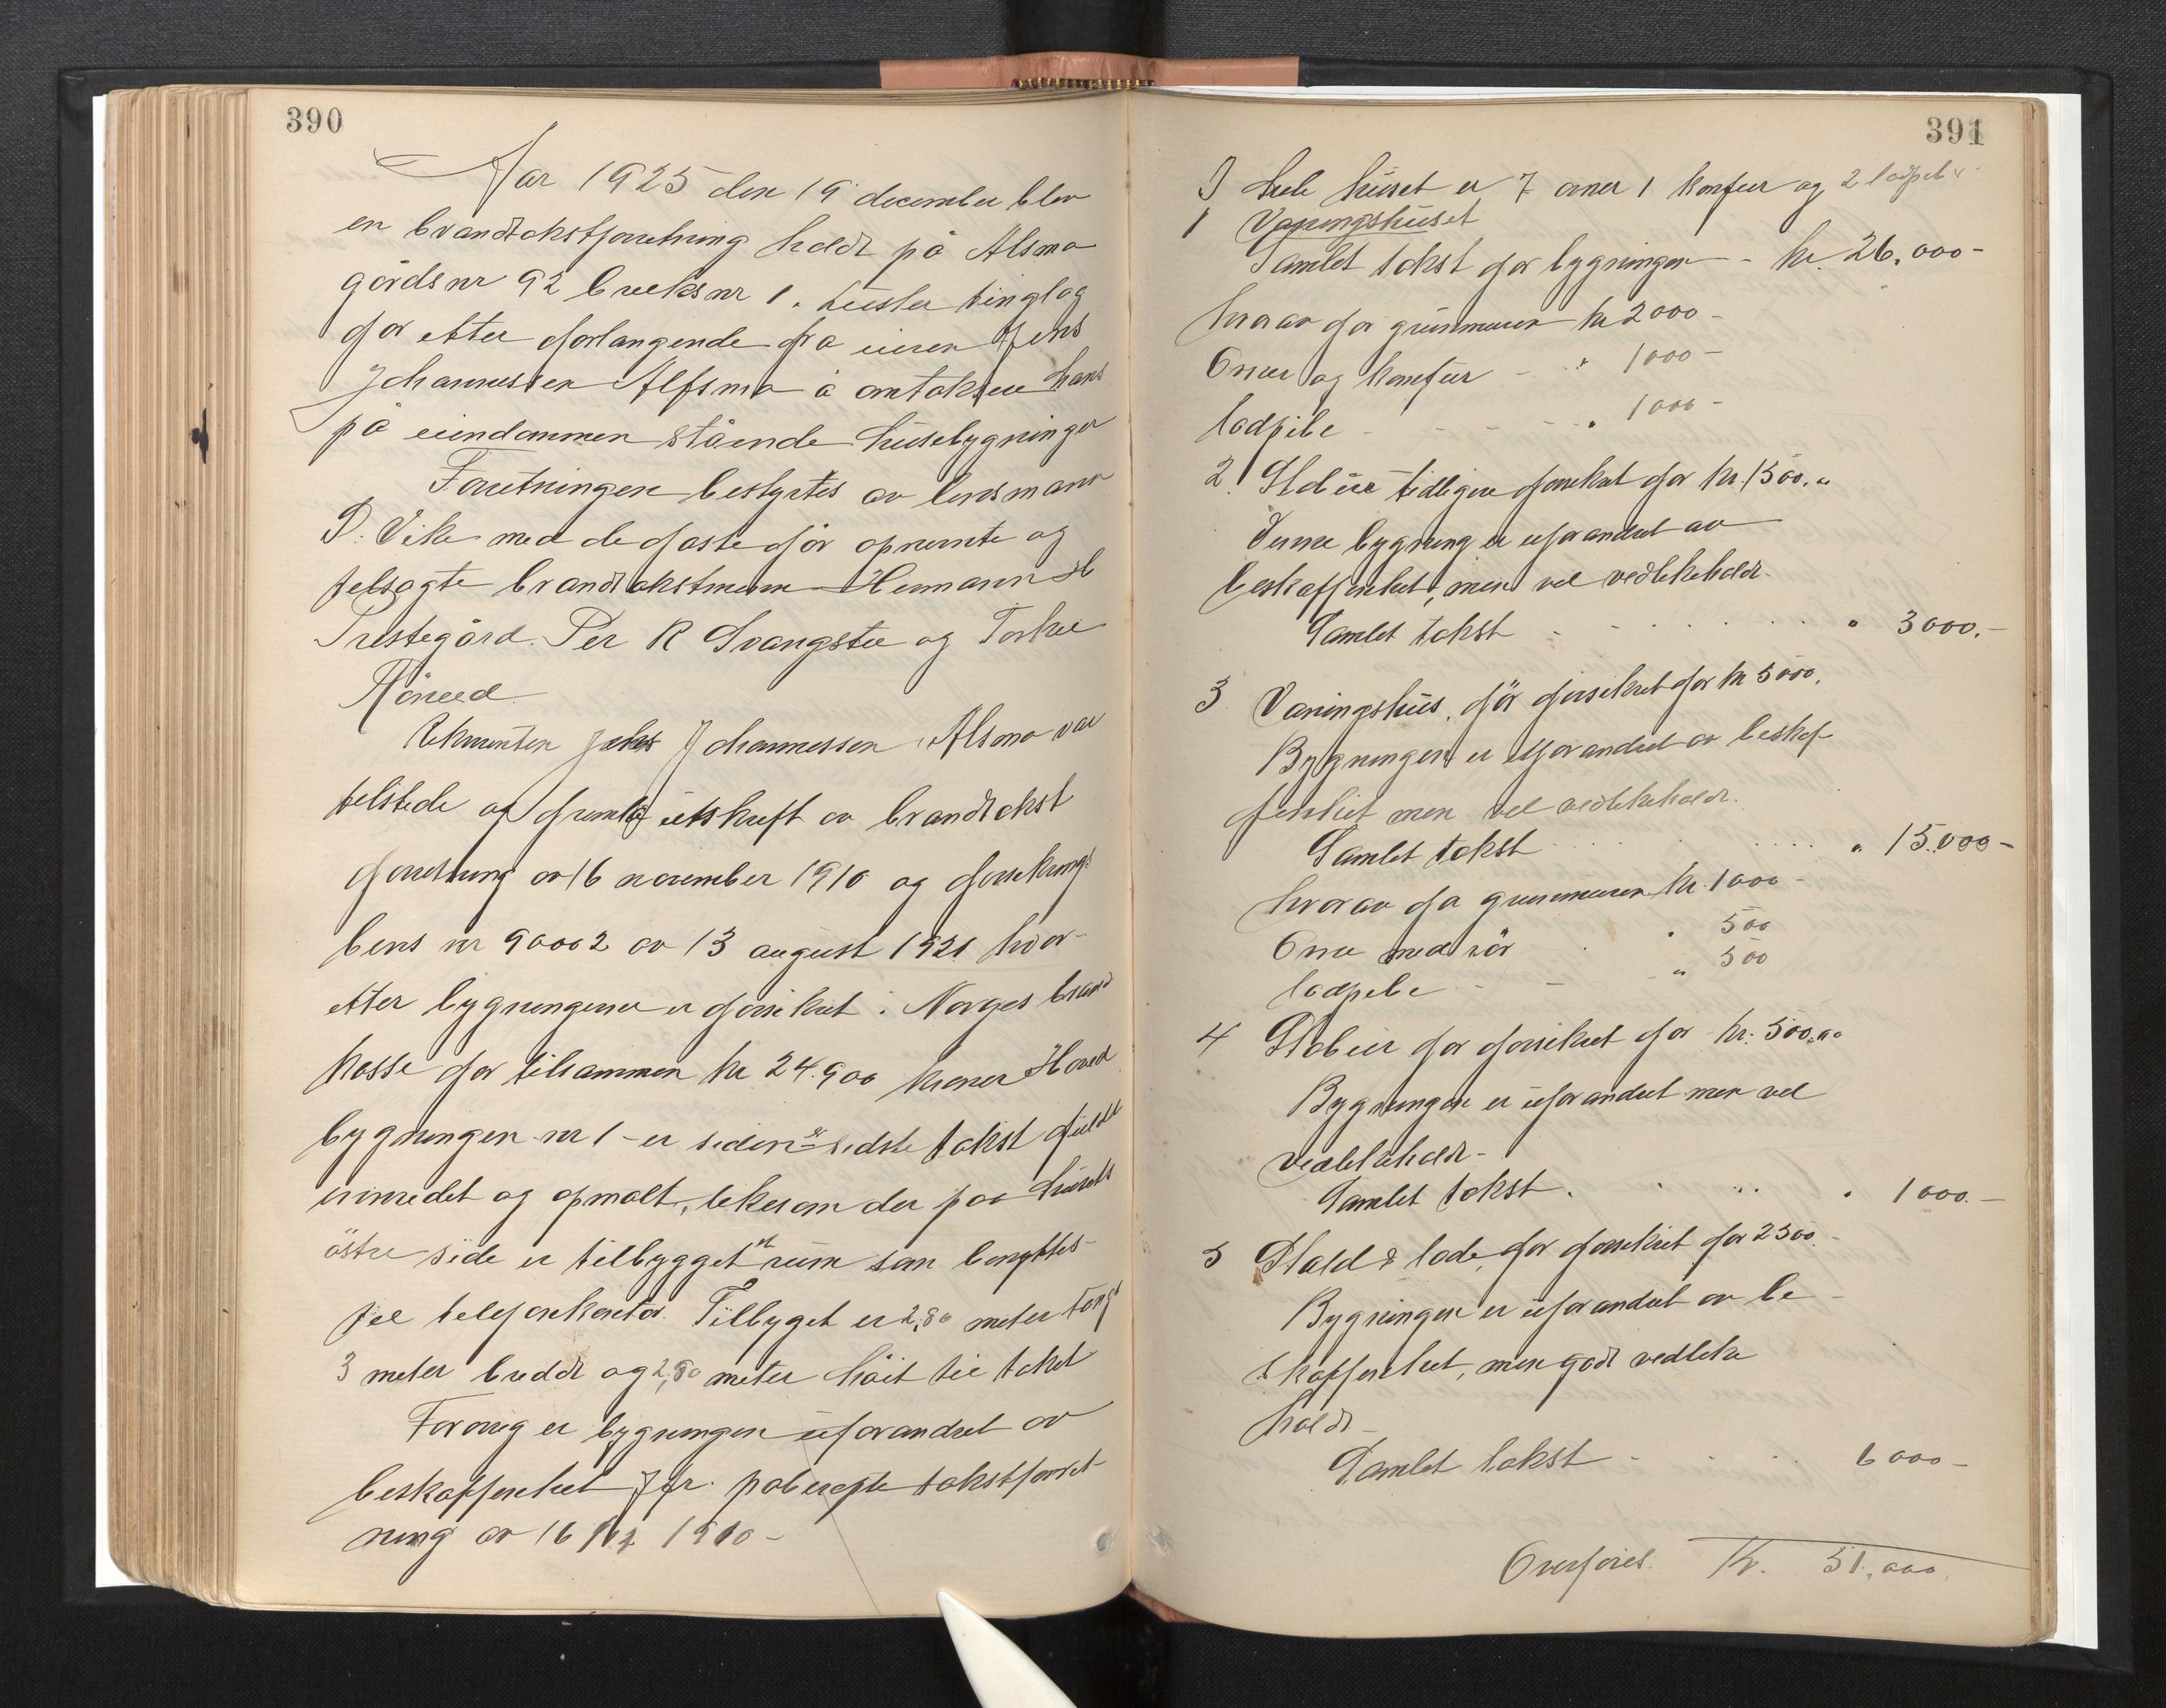 390
Aar 1925 den 19 december blev
en brandtakstforretning holdt på Alsmo
gårdsnr 92 bruksnr 1. Luster tinglag
for etter forlangende fra eieren Jens
Johannessen Alfsmo å omtaksere hans
på eiendommen stående husebygninger
Forretningen bestyrtes av lensmann
D. Vike med de faste før opnevnte og
edsagte brandtakstmenn Hermann H
Prestegård. Per R Svangstu og Torkel
Röneid
Rekvirenten Johannessen Alsmo var
tilstede og fremla utskrift av brandtakst
forretning av 16 november 1910 og forsikrings
bevis nr 90002 av 13 august 1921 hvor-
etter bygningene er forsikret i Norges brand
kasse for tilsammen kr 24.900 kroner Hoved
bygningen nr 1 er siden sidste takst fuldt
innredet og opmalt, likesom der paa husets
östre side er tilbygget et rum som benyttes
til telefonkontor. Tilbyget er 2,80 meter langt
3 meter bredt og 2,80 meter höit til taket
Forövrig er bygningen uforandret av
beskaffenhet Jfr. paberopte takstforret
ning av 16 1910 -
391
I hele huset er 7 ovner 1 komfur og 2 ladpiber
1 Vaningshuset
Samlet takst for bygningen - kr. 26,000 -
hvorav for grunmuren kr 2000 -
Ovner og komfur - " 1000 -
ladpibe - - - - " 1000 -
2. Stabur tidligere forsikret for kr. 1500.
Denne bygning er uforandret av
beskaffenhet, men vel vedlikeholdt.
Samlet takst " 3000.-
3 Vaningshus, för forsikret for kr 5000.
Bygningen er uforandret av beskaf
fenhet men vel vedlikeholdt.
Samlet takst " 15.000 -
hvorav for grunmuren kr. 1000 -
Ovne med rör " 500
ladpibe - - " 500
4 Stabur for forsikret for kr. 500.
Bygningen er uforandret men vel
vedlikeholdt -
Samlet takst. " 1000. -
5 Stald & lade, for forsikret for 2500. -
Bygningen er uforandret av be-
skaffenhet, men godt vedlike
holdt -
Samlet takst - 6000 -
Overföres. Kr. 51.000